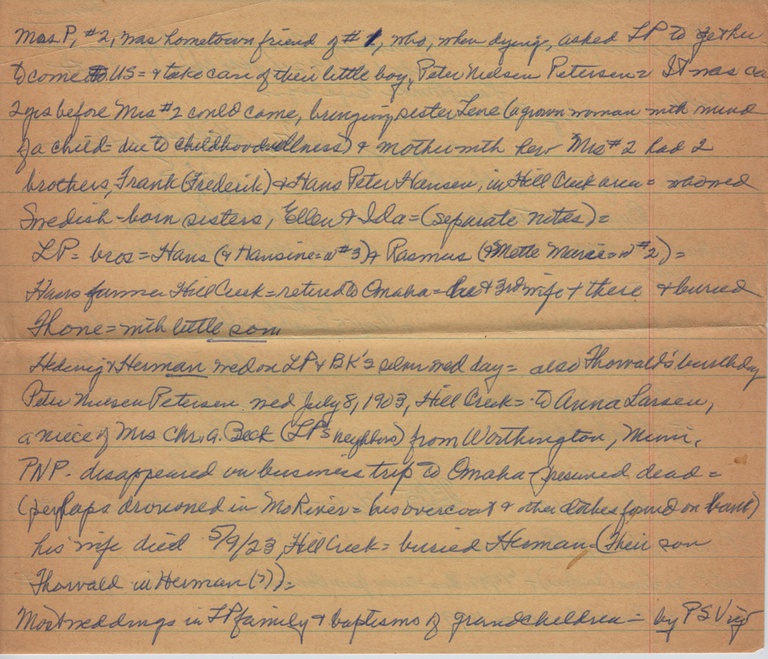 Mrs P, #2, was hometown friend of #1, who, when dying, asked LP to get her
to come to US = & take care of their little boy, Peter Nielsen Petersen = It was ca
2 yrs before Mrs #2 could come, bringing sister Lene (a grown woman with mind
of a child = due to childhood illness) & mother with her Mrs #2 had 2
brothers, Frank (Frederik) & Hans Peter Hansen, in Hill Creek area = who wed
Swedish-born sisters, Ellen & Ida = (separate notes) =
LP = bros = Hans (& Hansine = w #3) & Rasmus (& Mette Marie = w #2) =
Hans farmer Hill Creek = retired to Omaha = he & 3rd wife + there & buried
Thone = with little son
Hedevig & Herman wed on LP & BK's silver wed day = also Thorvald's birthday
Peter Nielsen Petersen wed July 8, 1903, Hill Creek = to Anna Larsen,
a niece of Mrs Chr. A. Beck (LP's neighbors) from Worthington, Minn,
PNP - disappeared on business trip to Omaha - presumed dead =
(perhaps drowned in Mo River = his overcoat & other clothes found on bank)
his wife died 5/9/23, Hill Creek = buried Herman (Their son
Thorvald in Herman (?)) =
Most weddings in LP family & baptisms of grandchildren = by PS Vig